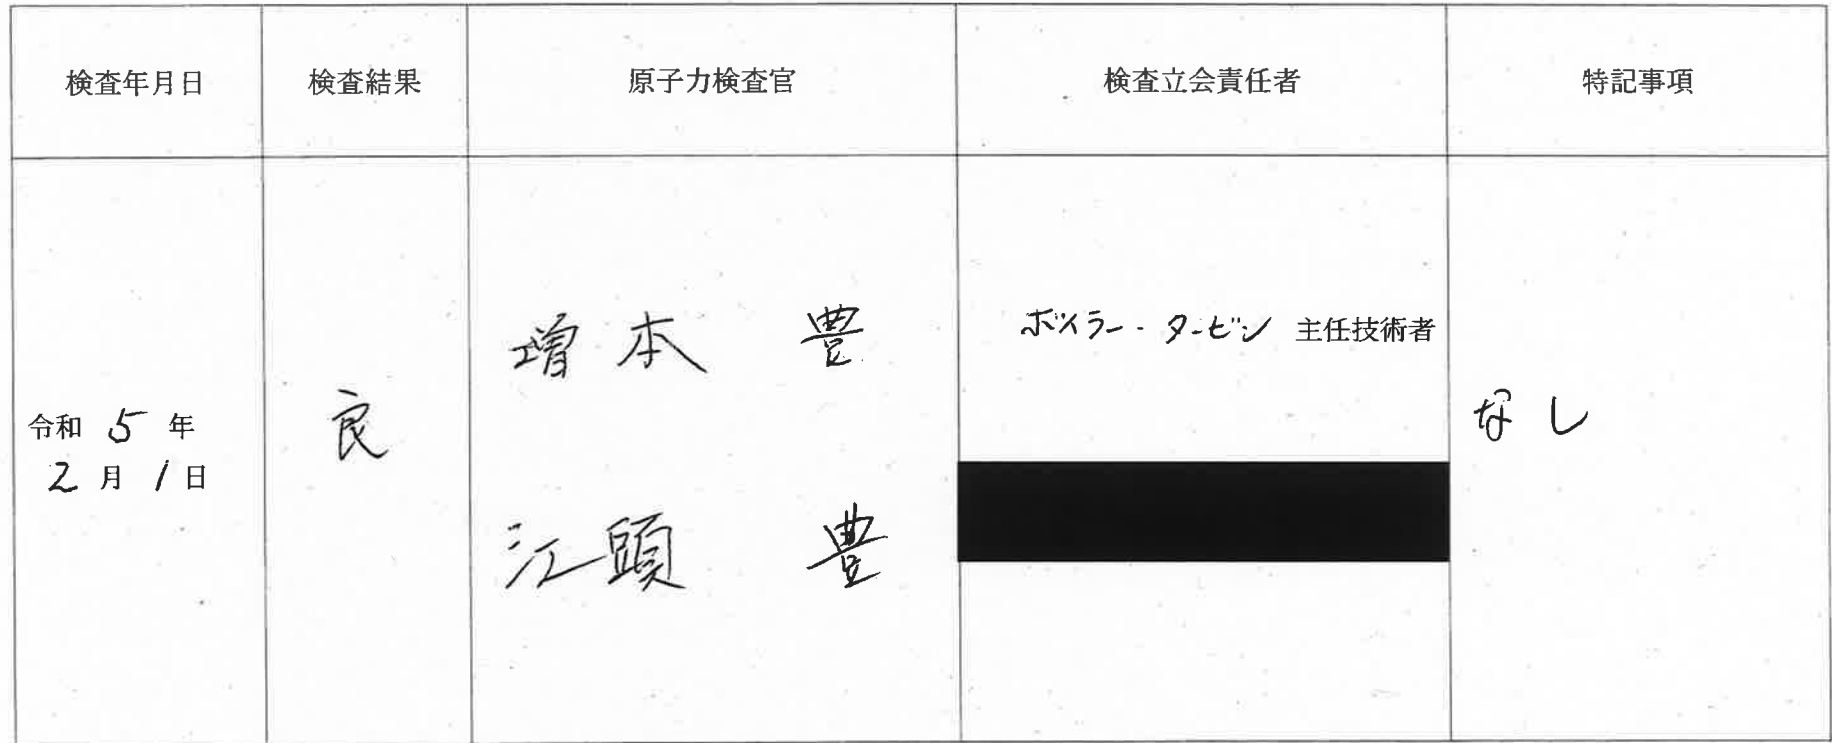 検査年月日
検査結果
原子力検査官
検査立会責任者
特記事項
令和 5 年
2 月 1 日
良
増本 豊
江頭 豊
ボイラー・タービン 主任技術者
なし